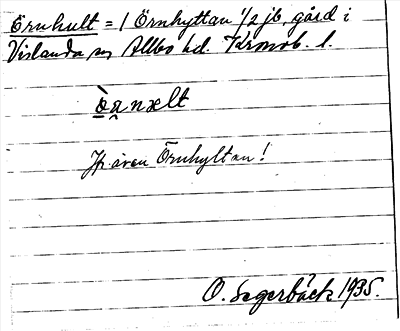 Örnhult = 1 Örnhyttan 1/2 jb, gård i
Vislanda sn Allbo hd. Kronob. l.
ò̱a̯nxlt
Jfr även Örnhyltan!
O. Segerbäck 1935.